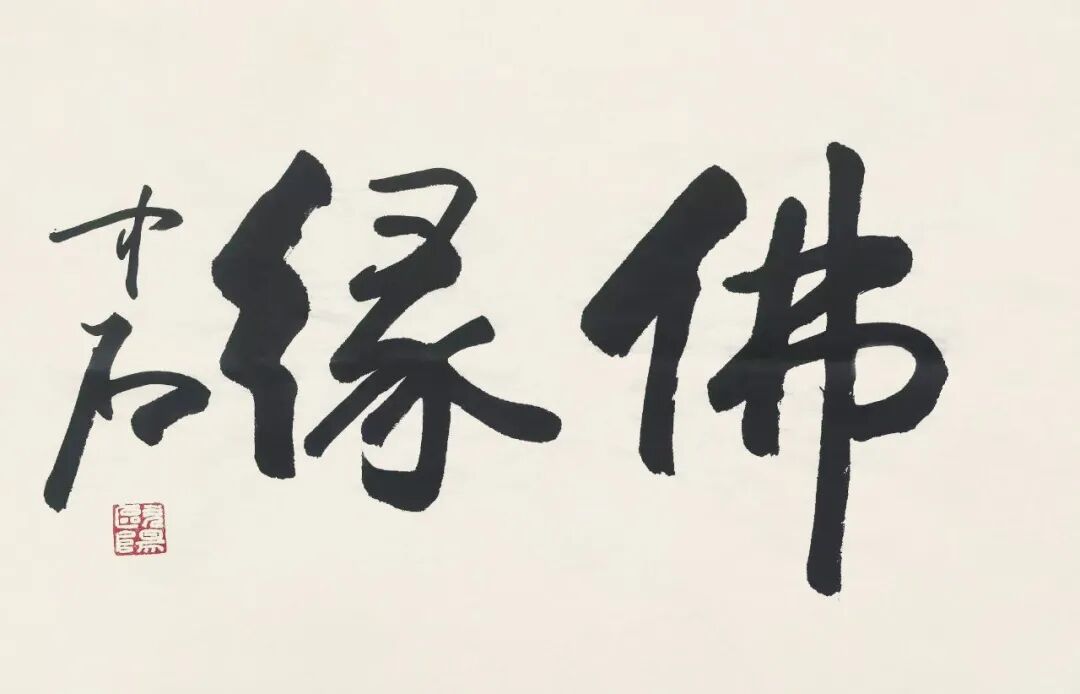 佛缘
中石